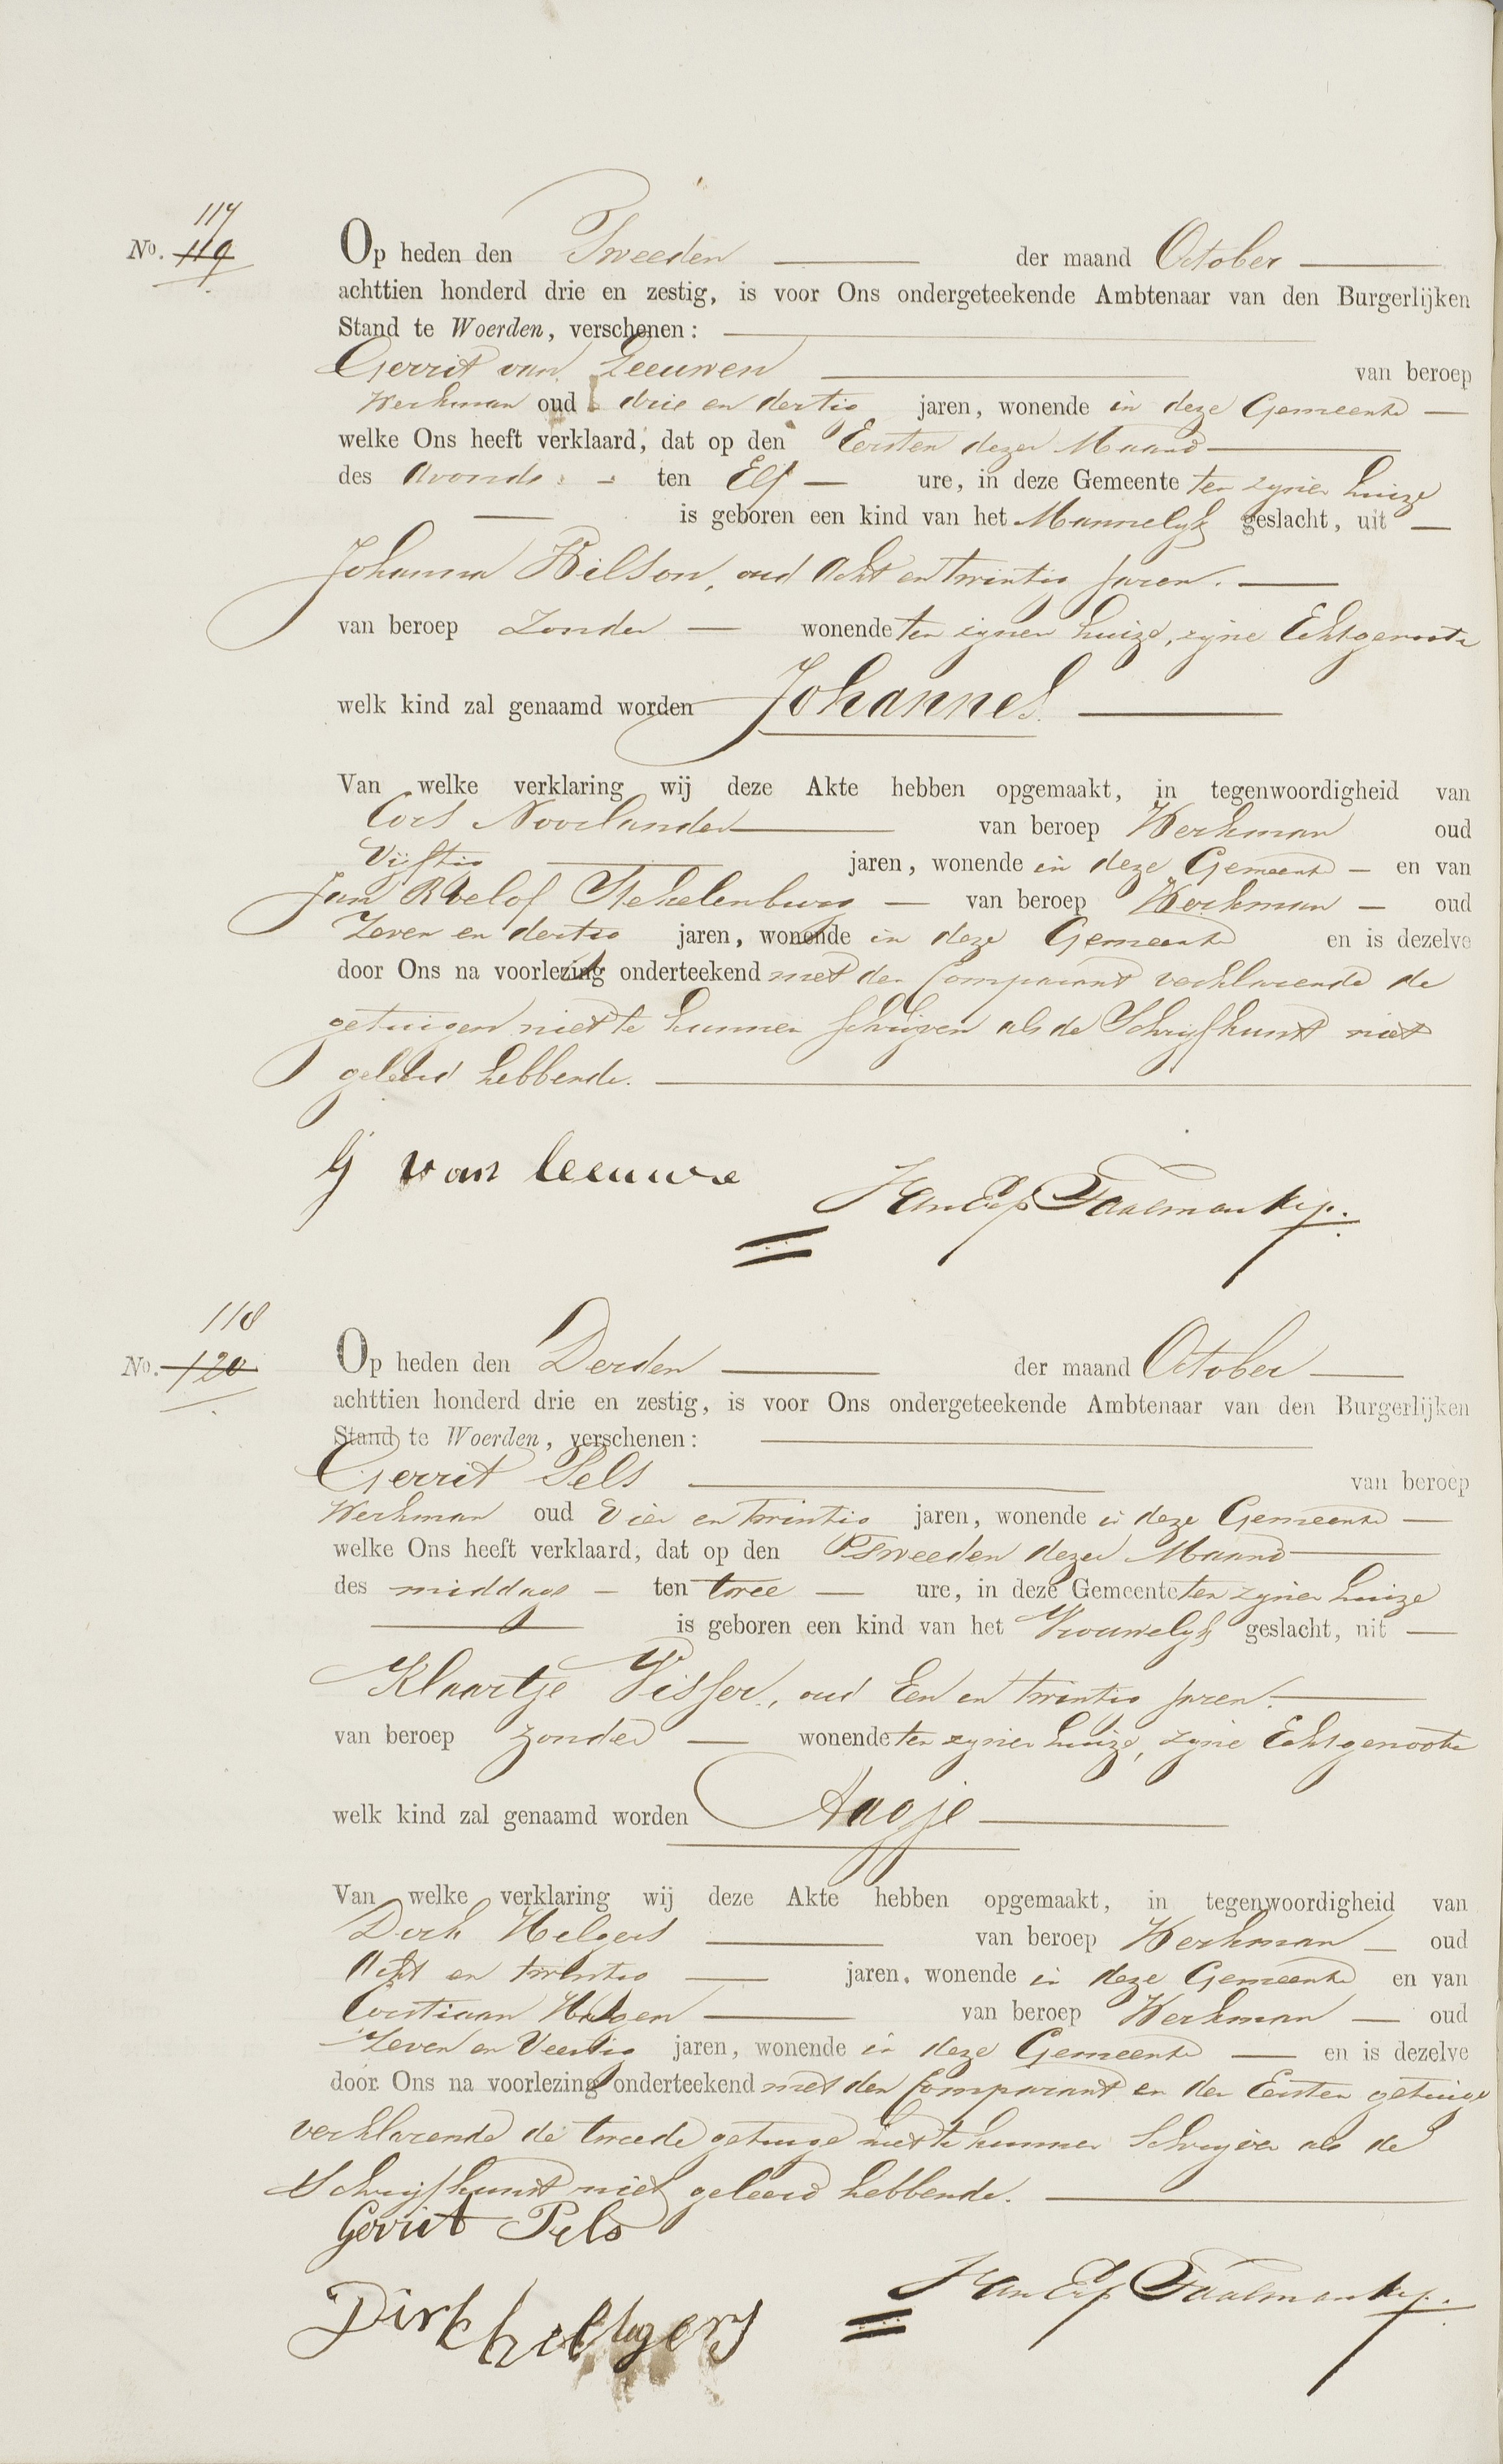 117
No. 119
Op heden den Tweeden der maand October
achttien honderd drie en zestig, is voor Ons ondergeteekende Ambtenaar van den Burgerlijken
Stand te Woerden, verschenen:
Gerrit van Leeuwen van beroep
Werkman oud drie en dertig jaren, wonende in deze Gemeente
welke Ons heeft verklaard, dat op den Eersten dezer Maand
des Avonds ten Elf ure, in deze Gemeente ten zynen huize
is geboren een kind van het Mannelyk geslacht, uit
Johanna Bilson, oud Acht en twintig Jaren.
van beroep Zonder wonende ten zynen huize, zyne Echtgenoote
welk kind zal genaamd worden Johannes
Van welke verklaring wij deze Akte hebben opgemaakt, in tegenwoordigheid van
Cors Noorlander van beroep Werkman oud
Vijftig jaren, wonende in deze Gemeente en van
Jan Roelof Stekelenburg van beroep Werkman oud
Zeven en dertig jaren, wonende in deze Gemeente en is dezelve
door Ons na voorlezing onderteekend met den Comparant verklarende de
getuigen niet te kunnen schrijven als de Schryfkunst niet
geleerd hebbende.
G van leeuwe
Taalman Kip.
118
No. 120
Op heden den Derden der maand October
achttien honderd drie en zestig, is voor Ons ondergeteekende Ambtenaar van den Burgerlijken
Stand te Woerden, verschenen:
Gerrit Pels van beroep
Werkman oud Vier en twintig jaren, wonende in deze Gemeente
welke Ons heeft verklaard, dat op den Tweeden dezer Maand
des middags ten twee ure, in deze Gemeente ten zynen huize
is geboren een kind van het Vrouwelyk geslacht, uit
Klaartje Visser, oud Een en twintig Jaren.
van beroep zonder wonende ten zynen huize, zyne Echtgenoote
welk kind zal genaamd worden Aagje
Van welke verklaring wij deze Akte hebben opgemaakt, in tegenwoordigheid van
Dirk Helgers van beroep Werkman oud
Acht en twintig jaren, wonende in deze Gemeente en van
Corstiaan van beroep Werkman oud
Zeven en Veertig jaren, wonende in deze Gemeente en is dezelve
door Ons na voorlezing onderteekend met den Comparant en den Eersten getuige
verklarende de tweede getuige niet te kunnen Schryven als de
Schryfkunst niet geleerd hebbende.
Gerrit Pels
Taalman Kip.
Dirk